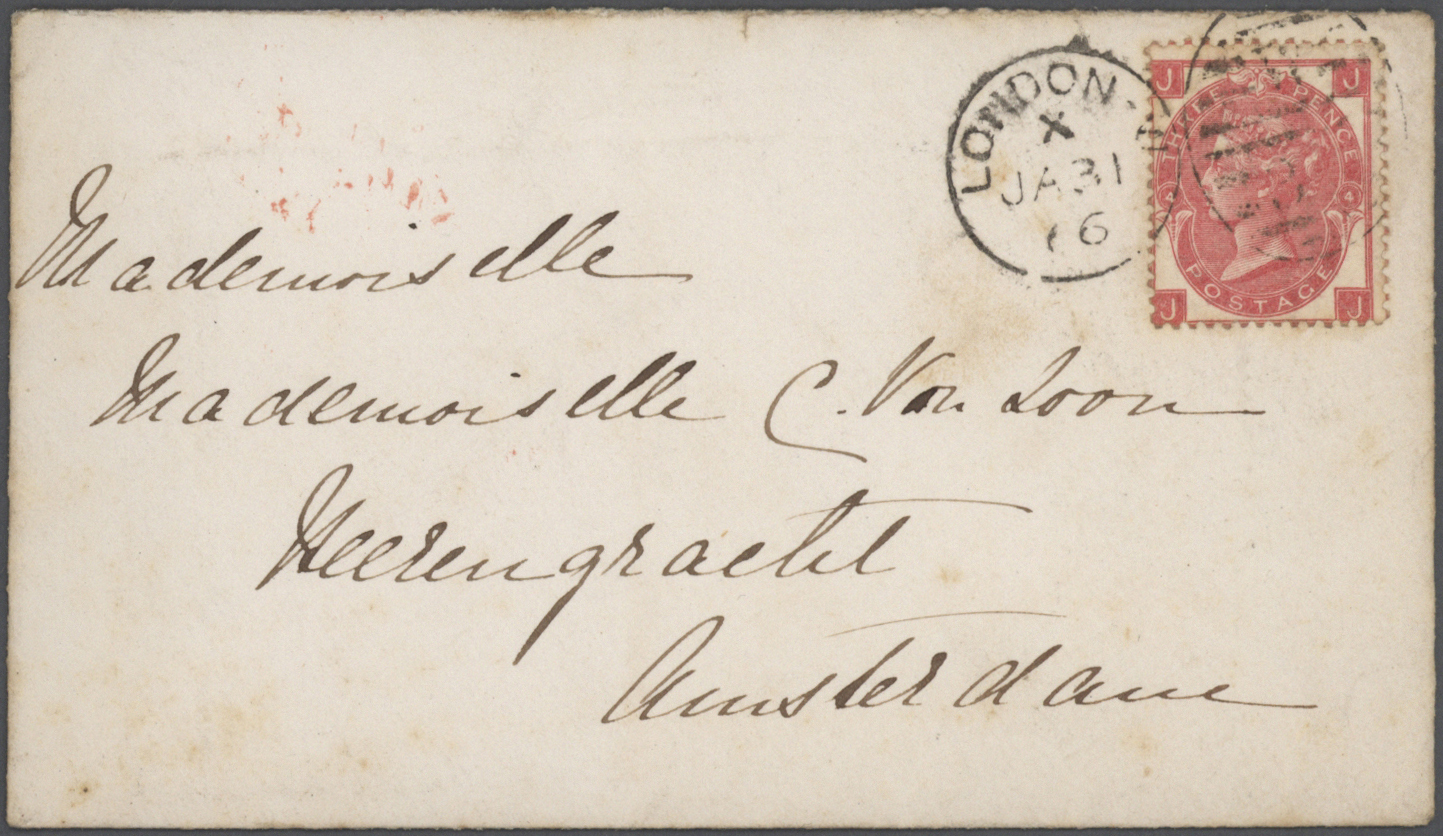 LONDON
X
JA 31
66
J J
THREE PENCE
4 4
POSTAGE
J J
Mademoiselle
Mademoiselle C. Van Loon
Heerengracht
Amsterdam